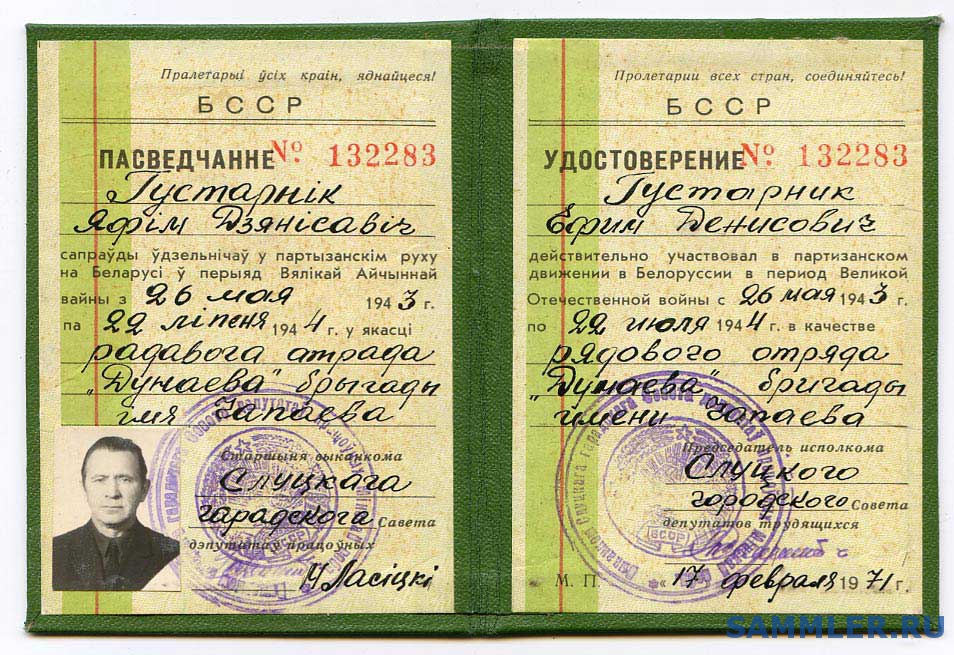 Пралетарыі ўсіх краін, яднайцеся!
БССР
ПАСВЕДЧАННЕ № 132283
Густарнік
Яфім Дзянісавіч
сапраўды ўдзельнічаў у партызанскім руху
на Беларусі ў перыяд Вялікай Айчыннай
вайны з 26 мая 1943 г.
па 22 ліпеня 1944 г. у якасці
радавога атрада
"Дунаева" брыгады
імя Чапаева
Старшыня выканкома
Слуцкага
гарадскога Савета
дэпутатаў працоўных
Ласіцкі
Пролетарии всех стран, соединяйтесь!
БССР
УДОСТОВЕРЕНИЕ № 132283
Густарник
Ефим Денисович
действительно участвовал в партизанском
движении в Белоруссии в период Великой
Отечественной войны с 26 мая 1943 г.
по 22 июля 1944 г. в качестве
рядового отряда
"Дунаева" бригады
имени Чапаева
Председатель исполкома
Слуцкого
городского Совета
депутатов трудящихся
БССР
М. П. "17" февраля 1971 г.
SAMMLER.RU